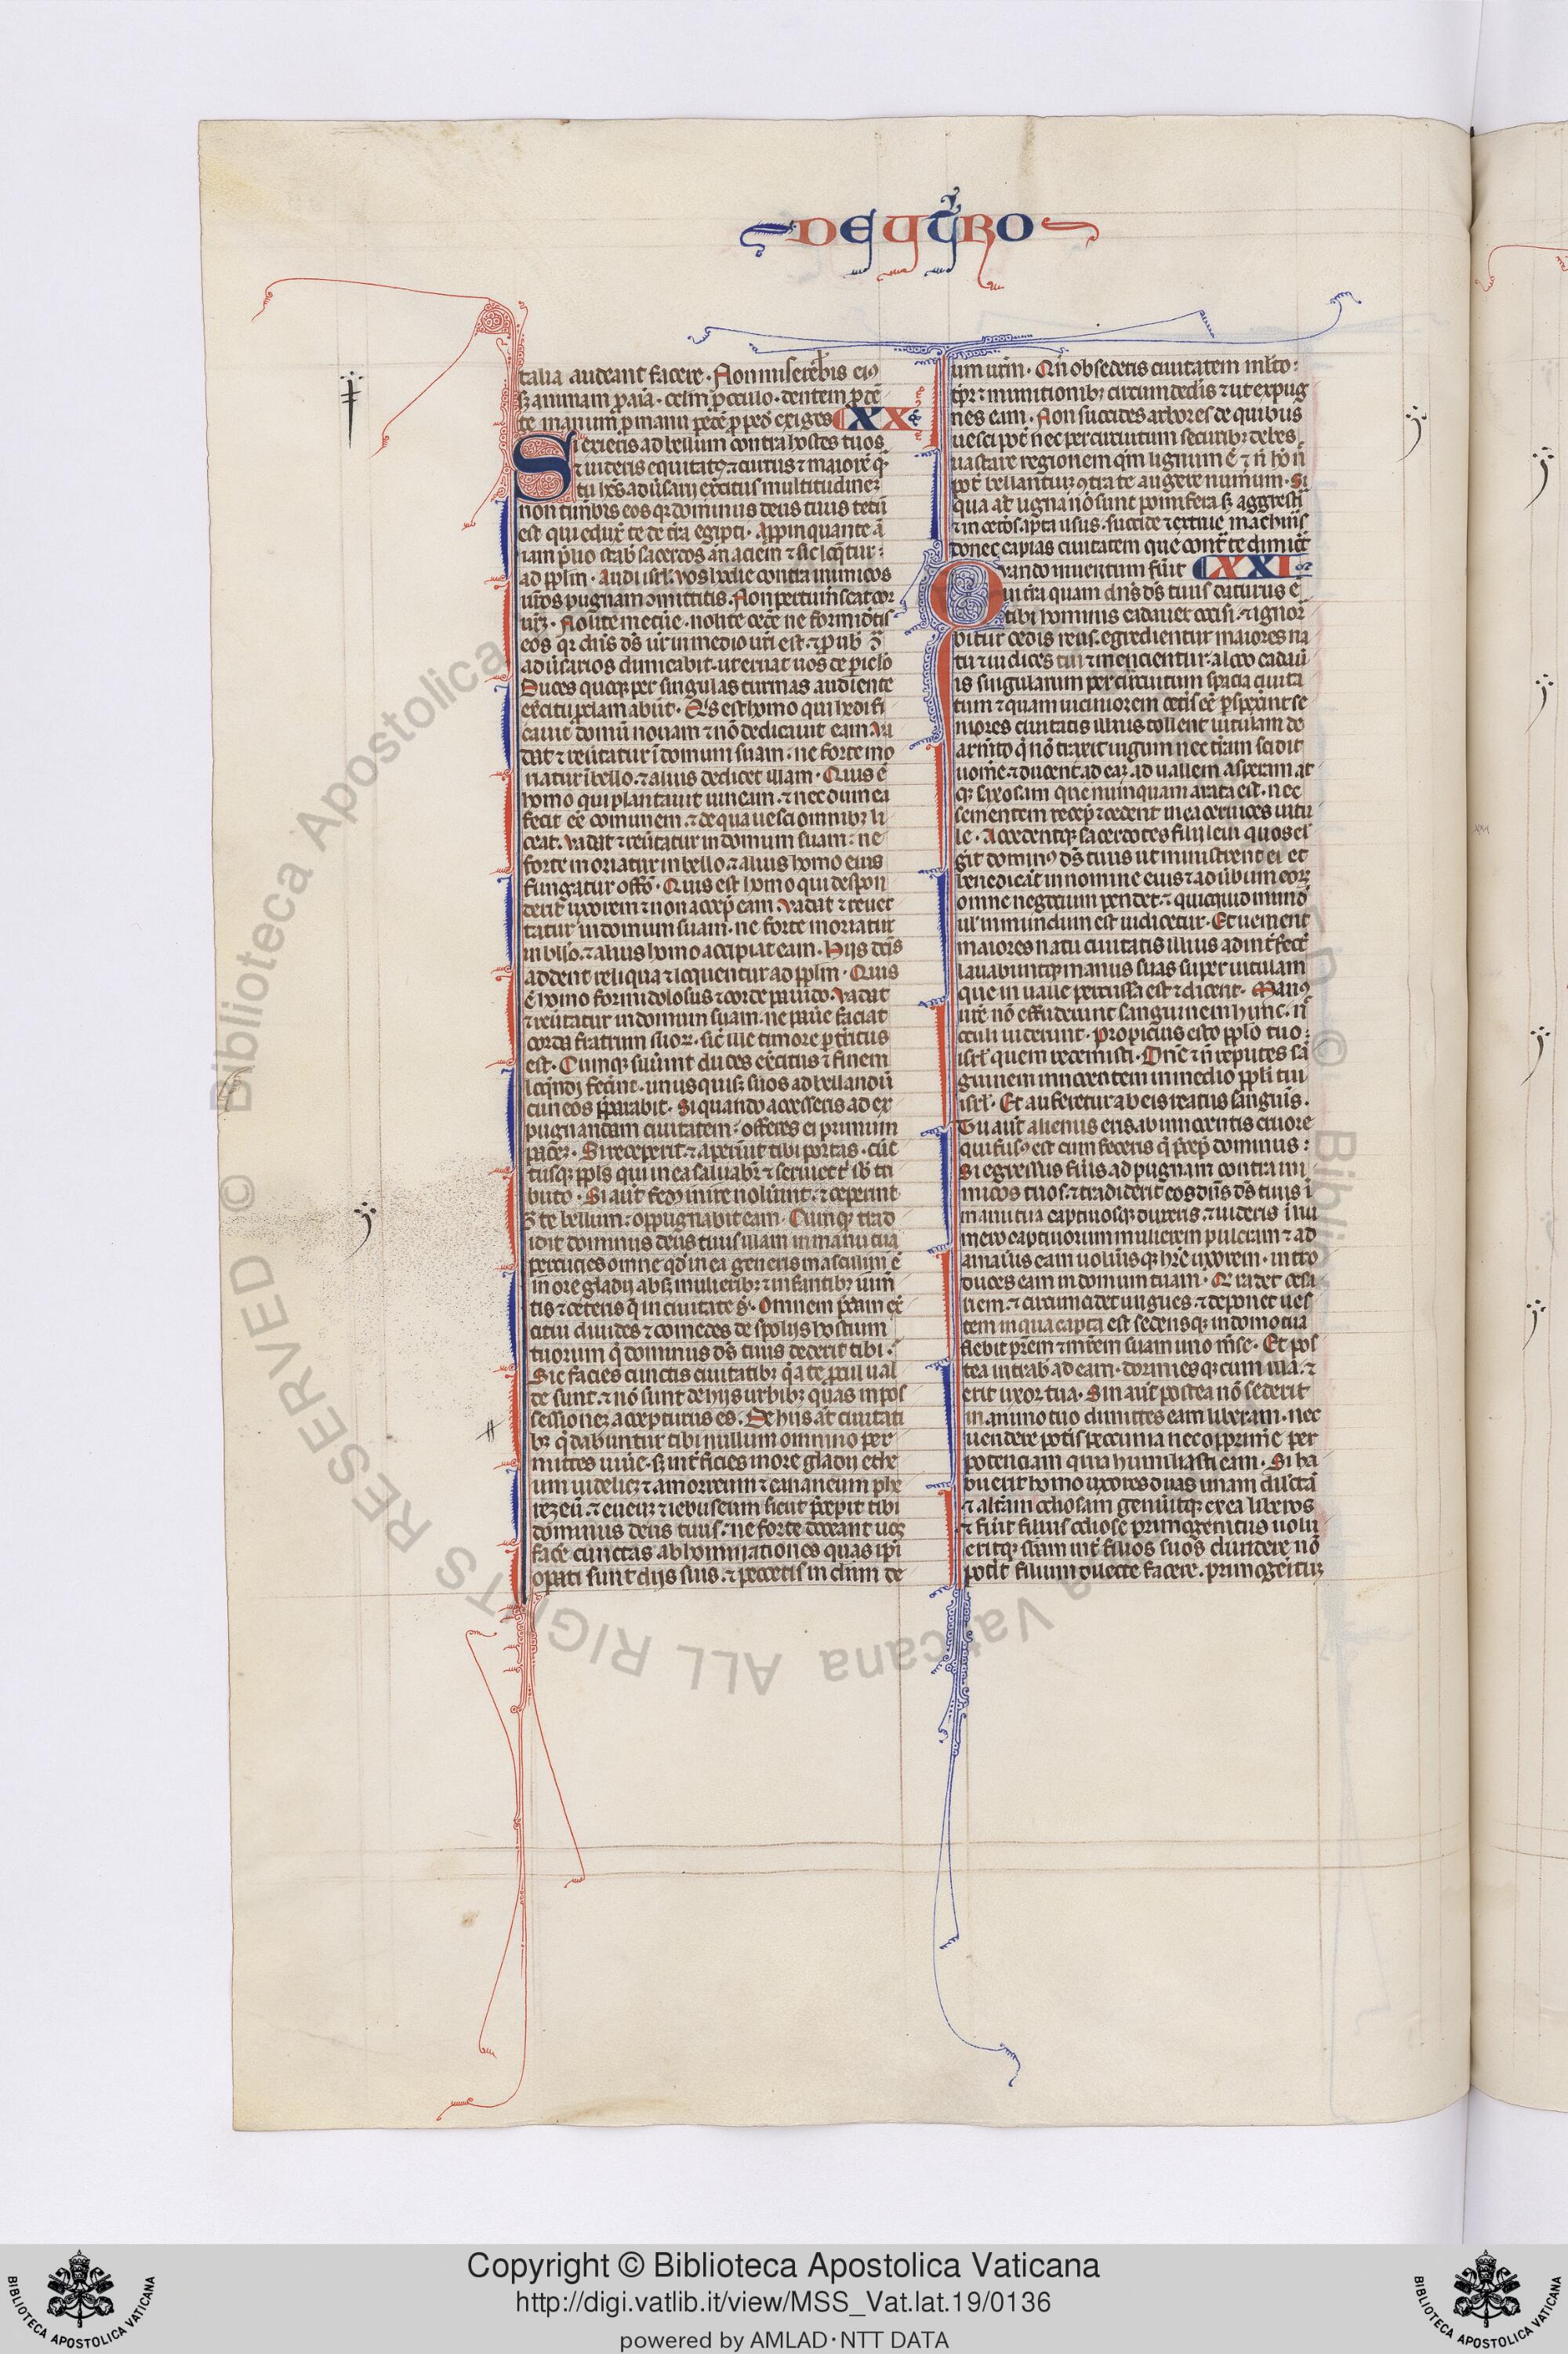 DEUTRO
talia audeant facere. Non misereb̄is eiꝰ
sꝫ animam p̄ aīa. oclm̄ p̄ oculo. dentem p̄ dē
te manum p̄ manu pedē p̄ pede exiges XX
Si exieris ad bellum contra hostes tuos
⁊ uideris equitatꝰ ⁊ currus ⁊ maiorē q̄ꝫ
tu hēs adūsarij exc̄itus multitudineꝫ
non timebis eos qꝛ dominus deus tuus tecū
est qui eduxͭ te de tr̄a egipti. Apꝓinquante ā
iam p̄lio stabͭ sacerdos an̄ aciem ⁊ sic loq̄tur:
ad pp̄lm. Audi isrl̄. uos hodie contra inimicos
ur̄os pugnam ꝯmittitis. Non pertimescat cor
ur̄ꝫ. Nolite metue. nolite cedē ne formidetis
eos qꝛ dn̄s dś ur̄ in medio ur̄i est. ⁊ p̄ uob̄ ꝯ̄
adūsarios dimicabit. ut eruat uos de piclo
Duces quoqꝫ per singulas turmas audiente
exc̄itu p̄clamabūt. Qis est homo qui hedifi
cauit domū nouam ⁊ nō dedicauit eam. ua
dat ⁊ reūtatur ī domum suam. ne forte mo
riatur ī bello. ⁊ alius dedicet illam. Quis ē
homo qui plantauit uineam. ⁊ nec dum eā
fecit eē comunem. ⁊ de qua uesci omnibꝫ li
ceat. vadat ⁊ reūtatur in domum suam: ne
forte moriatur in bello. ⁊ alius homo eius
fungatur offō. Quis est homo qui despon
derit uxorem ⁊ non accepͭ eam. vadat ⁊ reuer
tatur in domum suam. ne forte moriatur
in bllo. ⁊ alius homo accipiat eam. Hijs dc̄is
addent reliqua ⁊ loquentur ad pp̄lm. Quis
ē homo formidolosus ⁊ corde pauido. vadat
⁊ reūtatur in domum suam. ne paūe faciat
corda fratrum suoꝝ. sic̄ ille timore pt̄ritus
est. Cumqꝫ siluint duces exc̄itus ⁊ finem
loq̄ndi fec̄int. unusquisqꝫ suos ad bellandū
cuneos p̄parabit. Si quando accesseris ad ex
pugnandam ciuitatem: offeres ei primum
paceꝫ. Si receperit. ⁊ aperūit tibi portas. cūc
tusqꝫ pp̄ls qui in ea saluabr̄ ⁊ seruiet tͥ sb̄ tri
buto. Si aut̄ fedꝰ inire noluint. ⁊ ceperint
ꝯ̄ te bellum: oppugnabis eam. Cumqꝫ trad
iderit dominus deus tuus illam in manu tua
percucies omne qd̄ in ea generis masculini ē
in ore gladij absqꝫ mulieribꝫ ⁊ infantibꝫ ium̄
tis ⁊ ceteris q̄ in ciuitate st̄. Omnem p̄dam ex̄
citui diuides ⁊ comedes de spolijs hostium
tuorum q̄ dominus dś tuus dederit tibi.
Sic facies cunctis ciuitatibꝫ q̄ a te p̄cul ual
de sunt. ⁊ nō sunt de hijs urbibꝫ quas in pos
sessioneꝫ accepturus es. De hijs at̄ ciuitati
bꝫ q̄ dabuntur tibi nullum omnino per
mittes uiūe. sꝫ int̄ficies in ore gladij ethe
um uidelicꝫ ⁊ amorreum ⁊ cananeum phe
rezeū. ⁊ eueuꝫ ⁊ iebuseum sicut p̄cepit tibi
dominus deus tuus: ne forte doceant uos
facē cunctas abhominationes quas ipi
opati sunt dijs suis. ⁊ peccetis in dnm̄ de
um ur̄m. Qn̄ obsederis ciuitatem ml̄to:
tp̄r ⁊ munitionibꝫ circumdedis ⁊ ut expug
nes eam. Non succides arbores de quibus
uesci pot̄ nec per circuitum securibꝫ debes
uastare regionem qm̄ lignum ē ⁊ n̄ hō n̄
pot̄ bellantiuꝫ ꝯtra te augere numum. Si
qua at̄ ligna nō sunt pomifera sꝫ aggrestia
⁊ in cet̄os apta usus. succide ⁊ extrue machīas
donec capias ciuitatem que cont̄ te dimicat
Quando inuentum fūit XXI
in tr̄a quam dn̄s dś tuus daturus ē
tibi hominis cadauer occisi. ⁊ ignor
bitur cedis reus. egredientur maiores na
tu ⁊ iudices tui ⁊ mencientur. a loco cadaū
is singularum per circuitum spacia ciuita
tum ⁊ quam uiciniorem cet̄is eē p̄spexint se
niores ciuitatis illius tollent uitulam de
armento q̄ nō traxit iugum nec t̄ram scidit
uomē. ⁊ ducent ad eaꝫ. ad uallem asperam at
qꝫ saxosam que numquam arata est. nec
sementem recepͭ ⁊ cedent in ea ceruices uitu
le. Accedentqꝫ sacerdotes filij leui quos el̄
git dominꝰ dś tuus ut ministrent ei et
benedicāt in nomine eius ⁊ ad ūbum eoꝝ
omne negocium pendet. ⁊ quicquid mundū
ul̄ inmundum est iudicetur. Et uenient
maiores natu ciuitatis illius ad int̄fectū
lauabuntqꝫ manus suas super uitulam
que in ualle percussa est ⁊ dicent. Manꝰ
nr̄e nō effuderunt sanguinem hunc. n̄
oculi uiderunt. Propicius esto pp̄lo tuo:
isrl̄ quem redemisti. Dn̄e ⁊ n̄ reputes sā
guinem innocentem in medio pp̄li tui
isrl̄. Et auferetur ab eis reatus sanguīs.
Tu aut̄ alienus eris ab innocentis cruore
qui fusꝰ est cum feceris q̄ p̄cepͭ dominus:
Si egressus fūis ad pugnam contra ini
micos tuos. ⁊ tradiderit eos dn̄s dś tuus ī
manu tua captiuosqꝫ duxeris. ⁊ uideris ī nu
mero captiuorum mulierem pulcram ⁊ ad
amaūis eam uoluisqꝫ hr̄e uxorem. intro
duces eam in domum tuam. Q radet cesa
riem. ⁊ circumcidet ungues. ⁊ deponet ues
tem in qua capta est sedensqꝫ in domo tua
flebit pr̄em ⁊ mr̄em suam uno m̄se. Et pos
tea intrab ad eam. dormiesqꝫ cum illa. ⁊
erit uxor tua. Sin aut̄ postea nō sederit
in animo tuo dimittes eam liberam. nec
uendere pot̄is peccunia nec opprimē per
potenciam quia humiliasti eam. Si ha
buerit homo uxores duas unam dilectā
⁊ altām odiosam genūitqꝫ ex ea liberos
⁊ fūit filius odiose primogenitus uolū
eritqꝫ sbām int̄ filios suos diuidere nō
pot̄it filium dilecte facere. primogenituꝫ
Copyright © Biblioteca Apostolica Vaticana
http://digi.vatlib.it/view/MSS_Vat.lat.19/0136
powered by AMLAD·NTT DATA
BIBLIOTECA APOSTOLICA VATICANA
BIBLIOTECA APOSTOLICA VATICANA
© Biblioteca Apostolica Vaticana ALL RIGHTS RESERVED